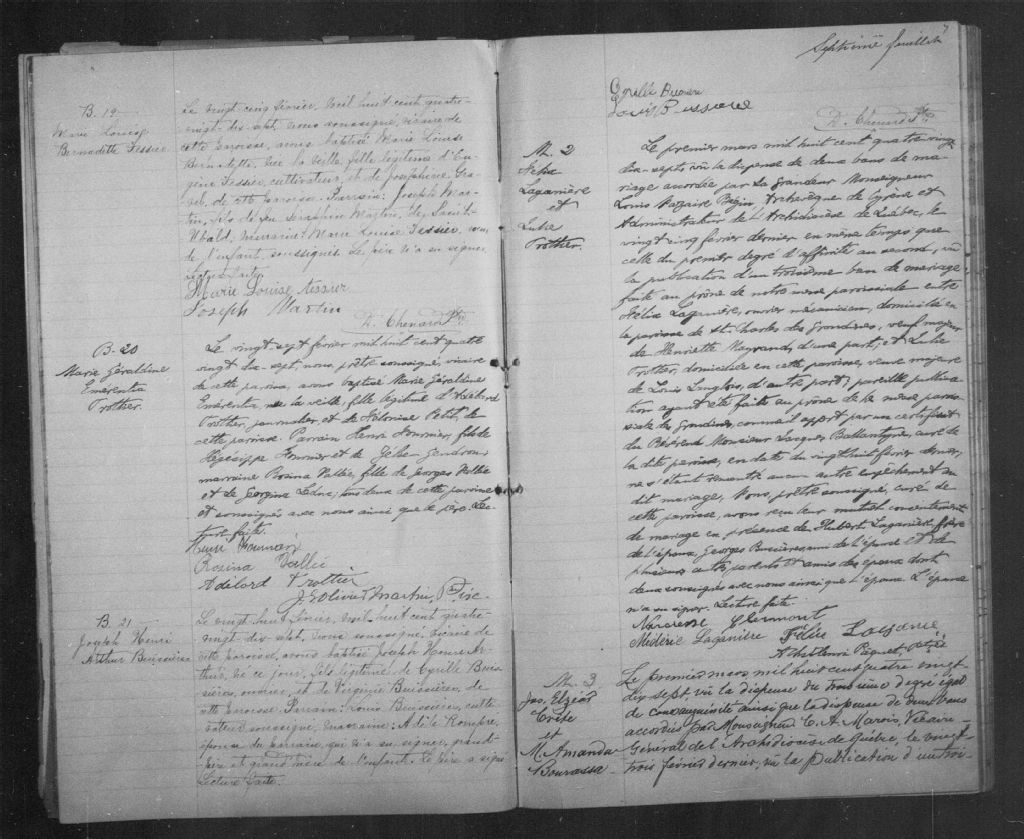 B. 19
Marie Louise
Bernadette Tessier
Le vingt-cinq février, mil huit cent quatre-
vingt-dix-sept, nous soussigné, vicaire de
cette paroisse, avons baptisé Marie Louise
Bernadette, née la veille, fille légitime d'Eu-
gène Tessier, cultivateur, et de Joséphine
de cette paroisse. Parrain: Joseph Mar-
tin, fils de feu Séraphin Martin, de Saint-
Ubald; marraine: Marie Louise Tessier,
de l'enfant, soussignés. Le père n'a su signer.
Lecture faite.
Marie Louise tessier
Joseph Martin
D. Chenard Ptre
B. 20
Marie Géraldine
Émérentia
Trottier.
Le vingt sept février mil huit cent quatre
vingt dix-sept, nous, prêtre soussigné, vicaire
de cette paroisse, avons baptisé Marie Géraldine
Émérentia, née la veille, fille légitime d'Adélard
Trottier, journalier, et de Héloïse Petit, de
cette paroisse. Parrain Henri Fournier, fils de
Hégésippe Fournier et de Gendron,
marraine Rosina Vallée, fille de Georges Vallée
et de Georgina tous deux de cette paroisse
et soussignés avec nous ainsi que le père. Lec-
ture faite.
Henri Fournier
Rosina Vallée
Adélord Trottier
J. E. Olivier Martin, Ptre Vic.
B. 21
Joseph Henri
Arthur Bussières
Le vingt-huit février, mil huit cent quatre-
vingt-dix-sept, nous soussigné, vicaire de
cette paroisse, avons baptisé Joseph Henri Ar-
thur, né ce jour, fils légitime de Cyrille Bus-
sières, ouvrier, et de Virginie Bussières, de
cette paroisse. Parrain: Louis Bussières, culti-
vateur, soussigné; marraine: Adèle Rompré,
épouse du parrain, qui n'a su signer, grand-
père et grand'mère de l'enfant. Le père a signé.
Lecture faite.
7
Septième feuillet
Cyrille Bussière
Louis Bussière
D. Chenard Ptre
M. 2
Félix
Laganière
et
Luke
Trottier.
Le premier mars mil huit cent quatre vingt
dix-sept, vu la dispense de deux bans de ma-
riage accordée par Sa Grandeur Monseigneur
Louis Nazaire Bégin, Archevêque de Cyrène et
Administrateur de l'Archidiocèse de Québec, le
vingt cinq février dernier en même temps que
celle du premier degré d'affinité au second, vu
la publication d'un troisième ban de mariage
faite au prône de notre messe paroissiale entre
Félix Laganière, ouvrier mécanicien, domicilié en
la paroisse de St. Charles des Grondines, veuf majeur
de Henriette Mayrand, d'une part; et Luke
Trottier, domiciliée en cette paroisse, veuve majeure
de Louis Langlois, d'autre part; pareille publica-
tion ayant été faite au prône de la messe parois-
siale des Grondines, comme il appert par un certificat
du Révérend Monsieur Jacques Ballantyne, curé de
la dite paroisse, en date du vingt huit février dernier,
ne s'étant rencontré aucun autre empêchement au
dit mariage, Nous, prêtre soussigné, curé de
cette paroisse, avons reçu leur mutuel consentement
de mariage en présence de Hubert Laganière frère
de l'époux, Georges Bussières ami de l'épouse et de
plusieurs autres parents et amis des époux dont
deux soussignés avec nous ainsi que l'époux. L'épouse
n'a su signer. Lecture faite.
Narcisse Clermont
Médéric Laganière Félix
Henri Paquet
M. 3
Jos. Elzéar
Crête
et
M. Amanda
Bourassa
Le premier mars, mil huit cent quatre vingt
dix sept vu la dispense du troisième degré égal
de consanguinité ainsi que la dispense de deux bans
accordés par Monseigneur C. A. Marois, Vicaire
Général de l'Archidiocèse de Québec, le vingt-
trois février dernier, vu la publication d'un troi-